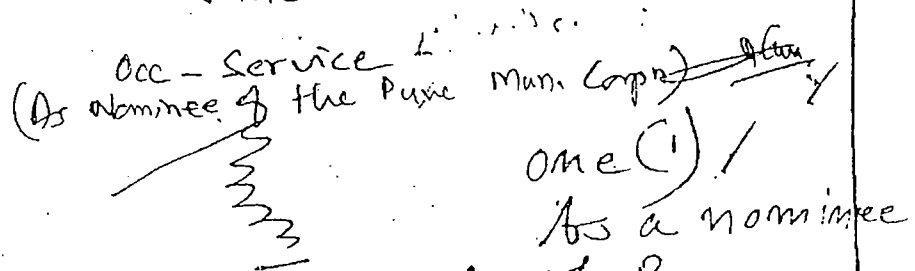 Occ - Service
(As Nominee of the Pune Mun. Corpn)
one (1) /
As a nominee